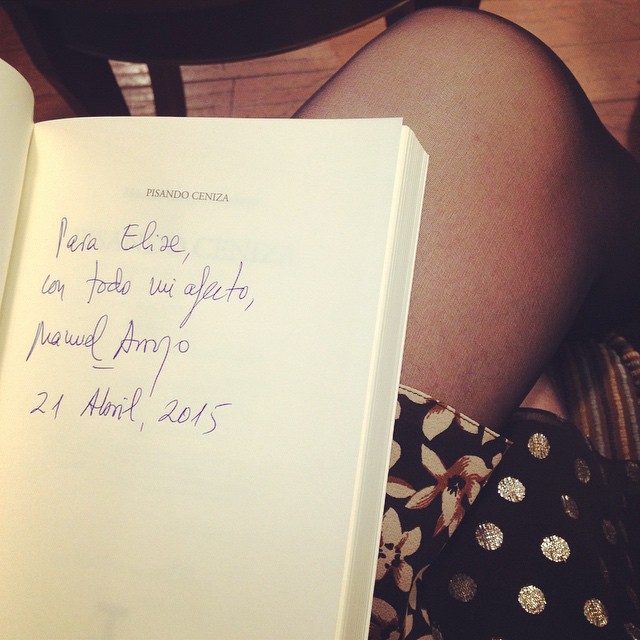 PISANDO CENIZA
Para Elise,
con todo mi afecto,
Manuel Arroyo
21 Abril, 2015